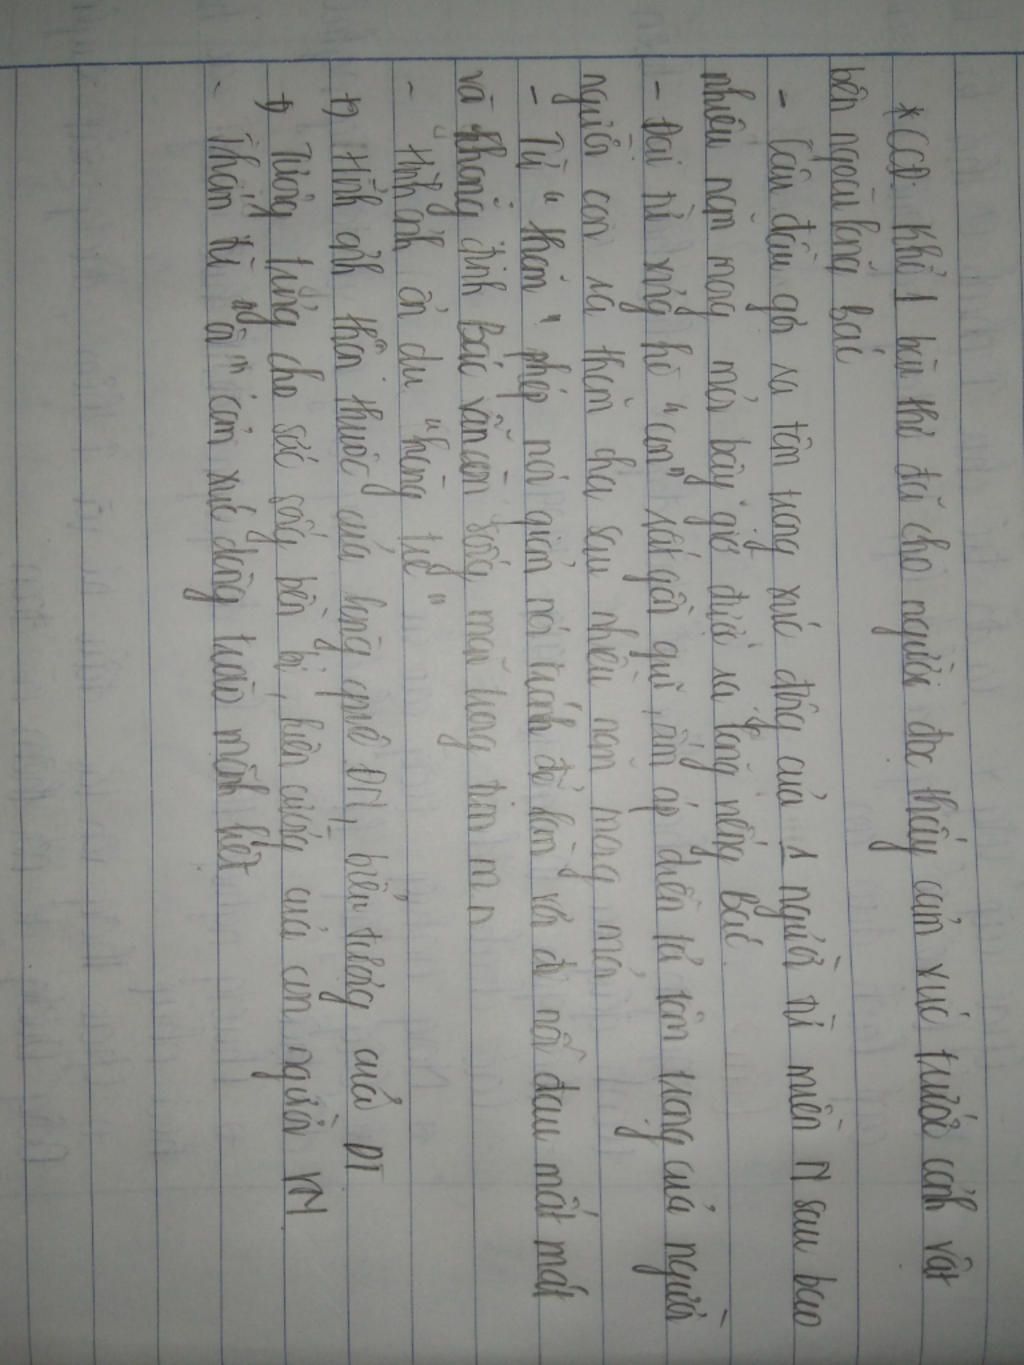 * CCĐ: Khổ 1 bài thơ đã cho người đọc thấy cảm xúc trước cảnh vật
bên ngoài lăng Bác
- Câu đầu gợi ra tâm trạng xúc động của 1 người từ miền N sau bao
nhiêu năm mong mỏi bây giờ được ra lăng viếng Bác
- Đại từ xưng hô "con" rất gần gũi, ấm áp diễn tả tâm trạng của người
người con ra thăm cha sau nhiều năm mong mỏi
- Từ "thăm" phép nói giảm nói tránh để làm vơi đi nỗi đau mất mát
và khẳng định Bác vẫn còn sống mãi trong tim m.n
- "hình ảnh ẩn dụ "hàng tre"
+) Hình ảnh thân thuộc của làng quê ĐN, biểu tượng của DT
+) Tượng trưng cho sức sống bền bỉ, kiên cường của con người VN
- Thán từ "ôi" cảm xúc dâng trào mãnh liệt